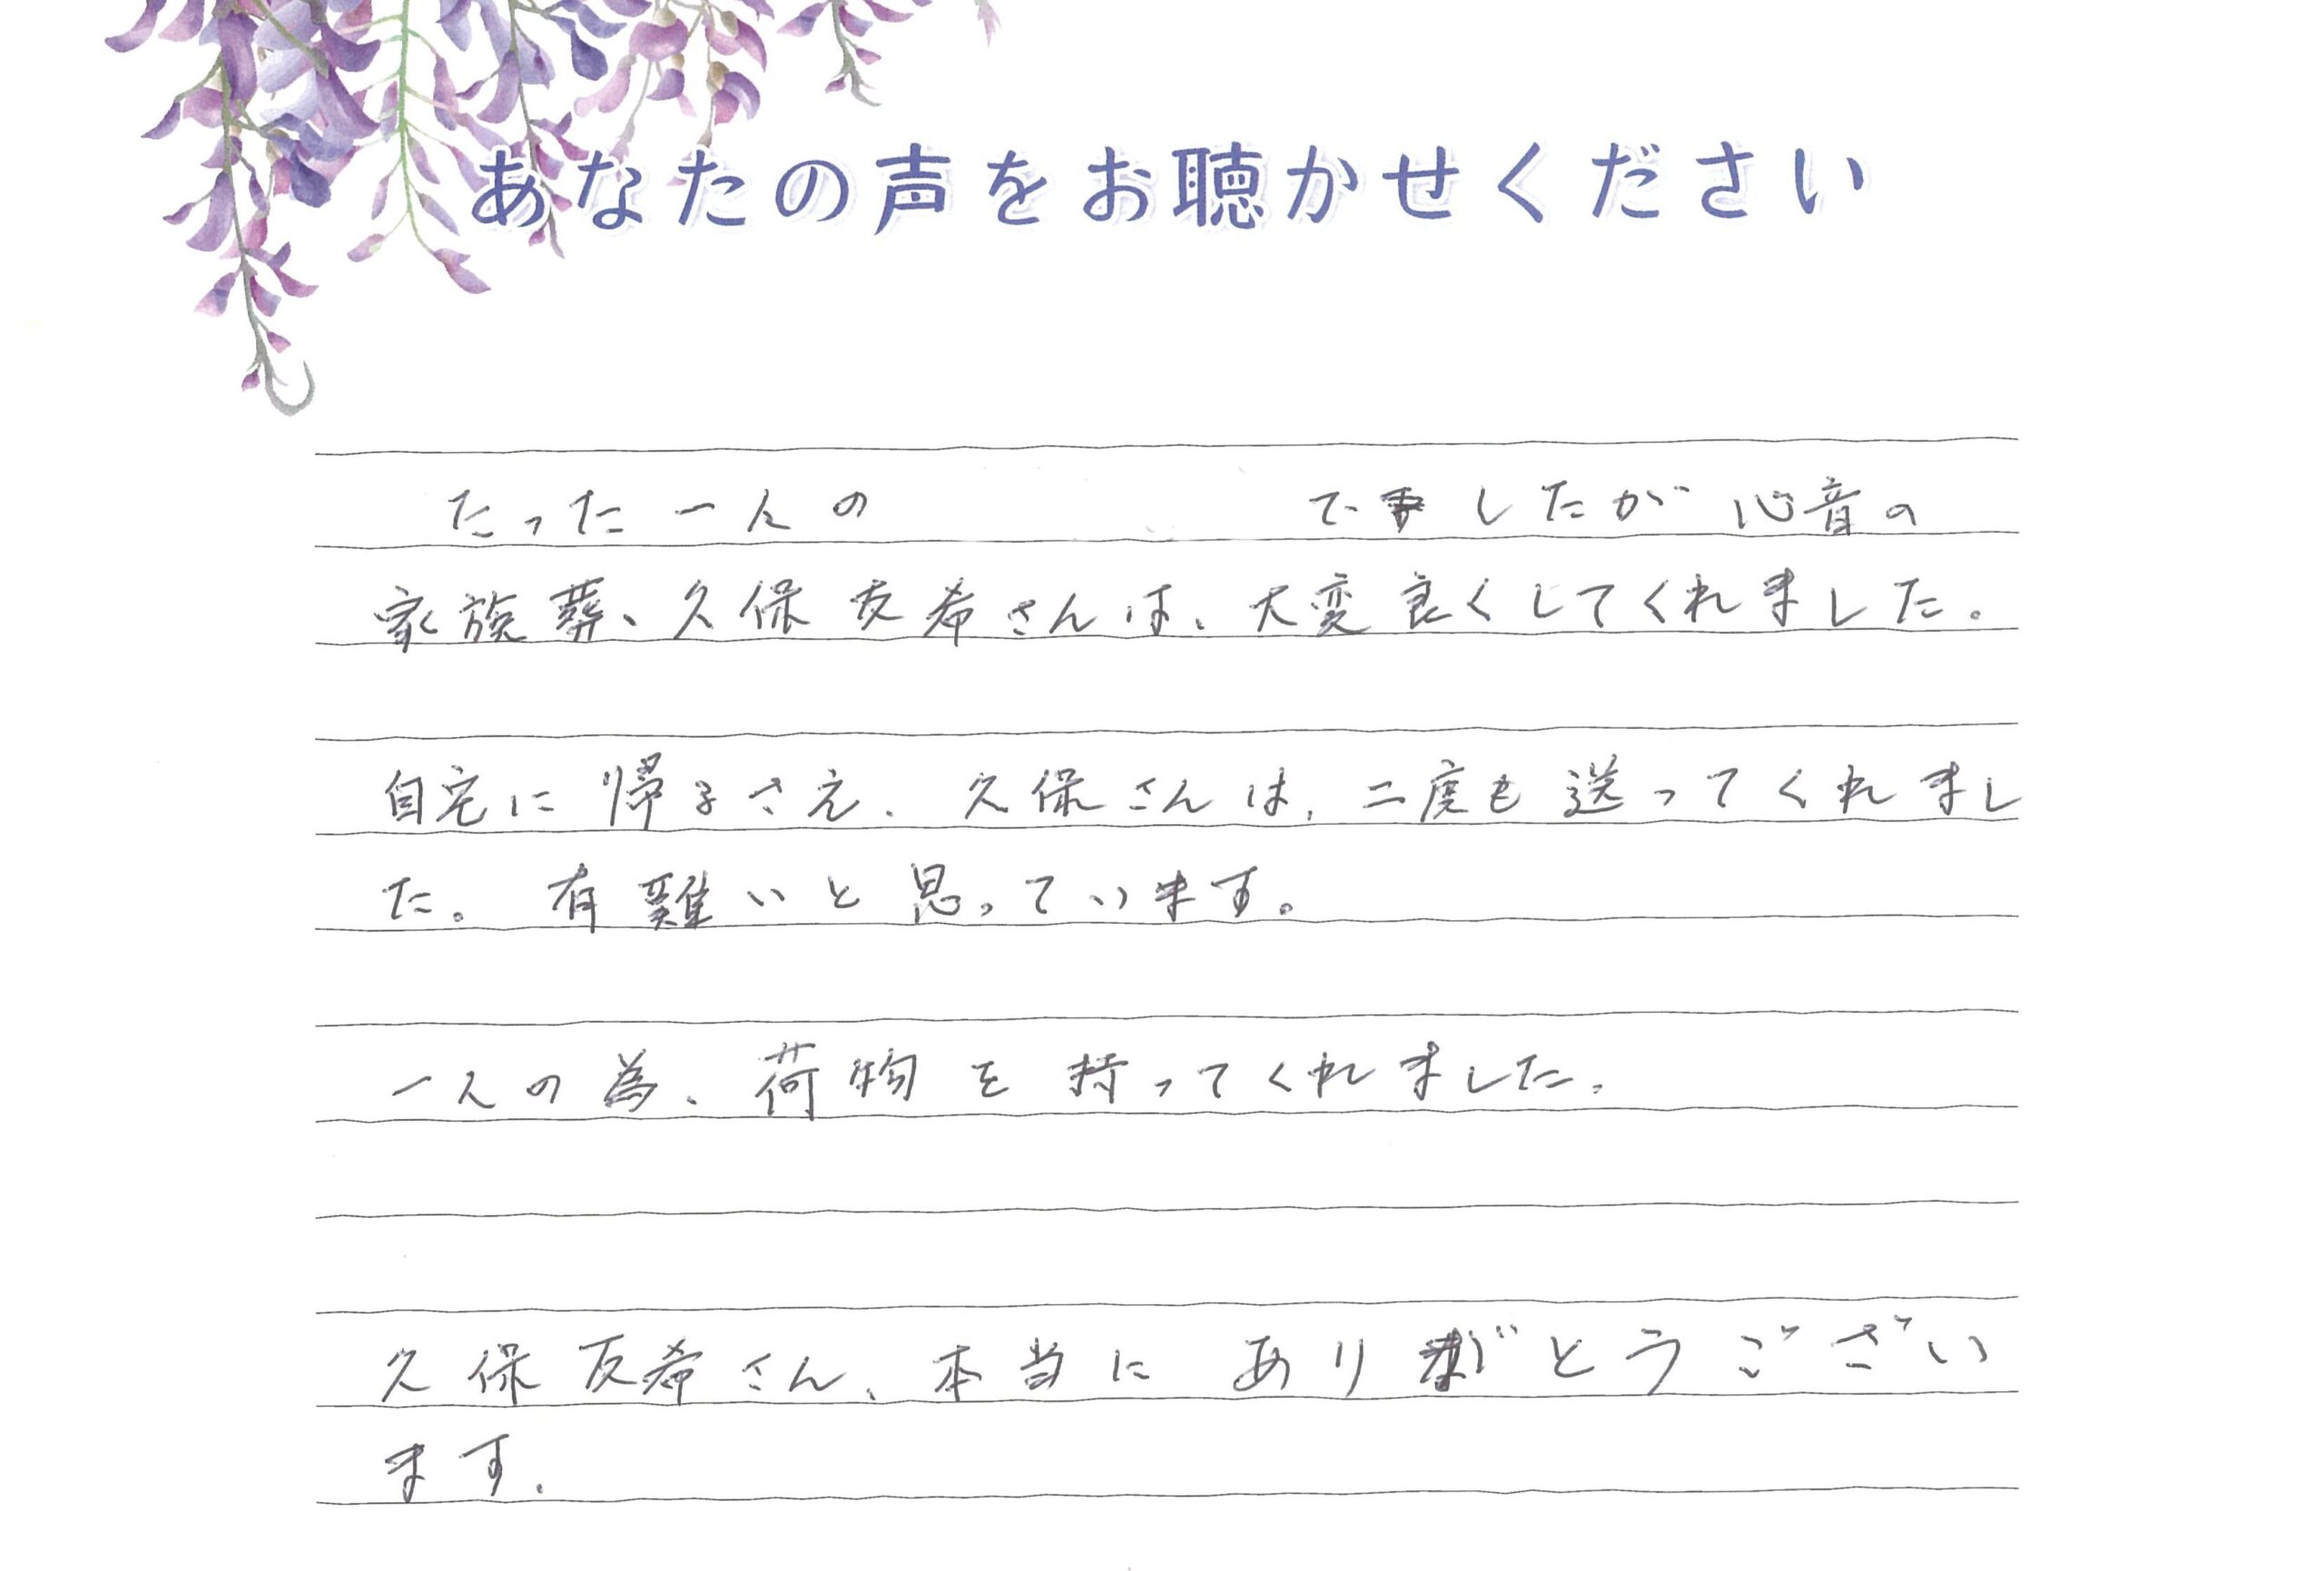 あなたの声をお聴かせください
たった一人の でしたが心音の
家族葬、久保友希さんは、大変良くしてくれました。
自宅に帰るさえ、久保さんは、二度も送ってくれまし
た。有難いと思っています。
一人の為、荷物を持ってくれました。
久保友希さん、本当にありがとうござい
ます。